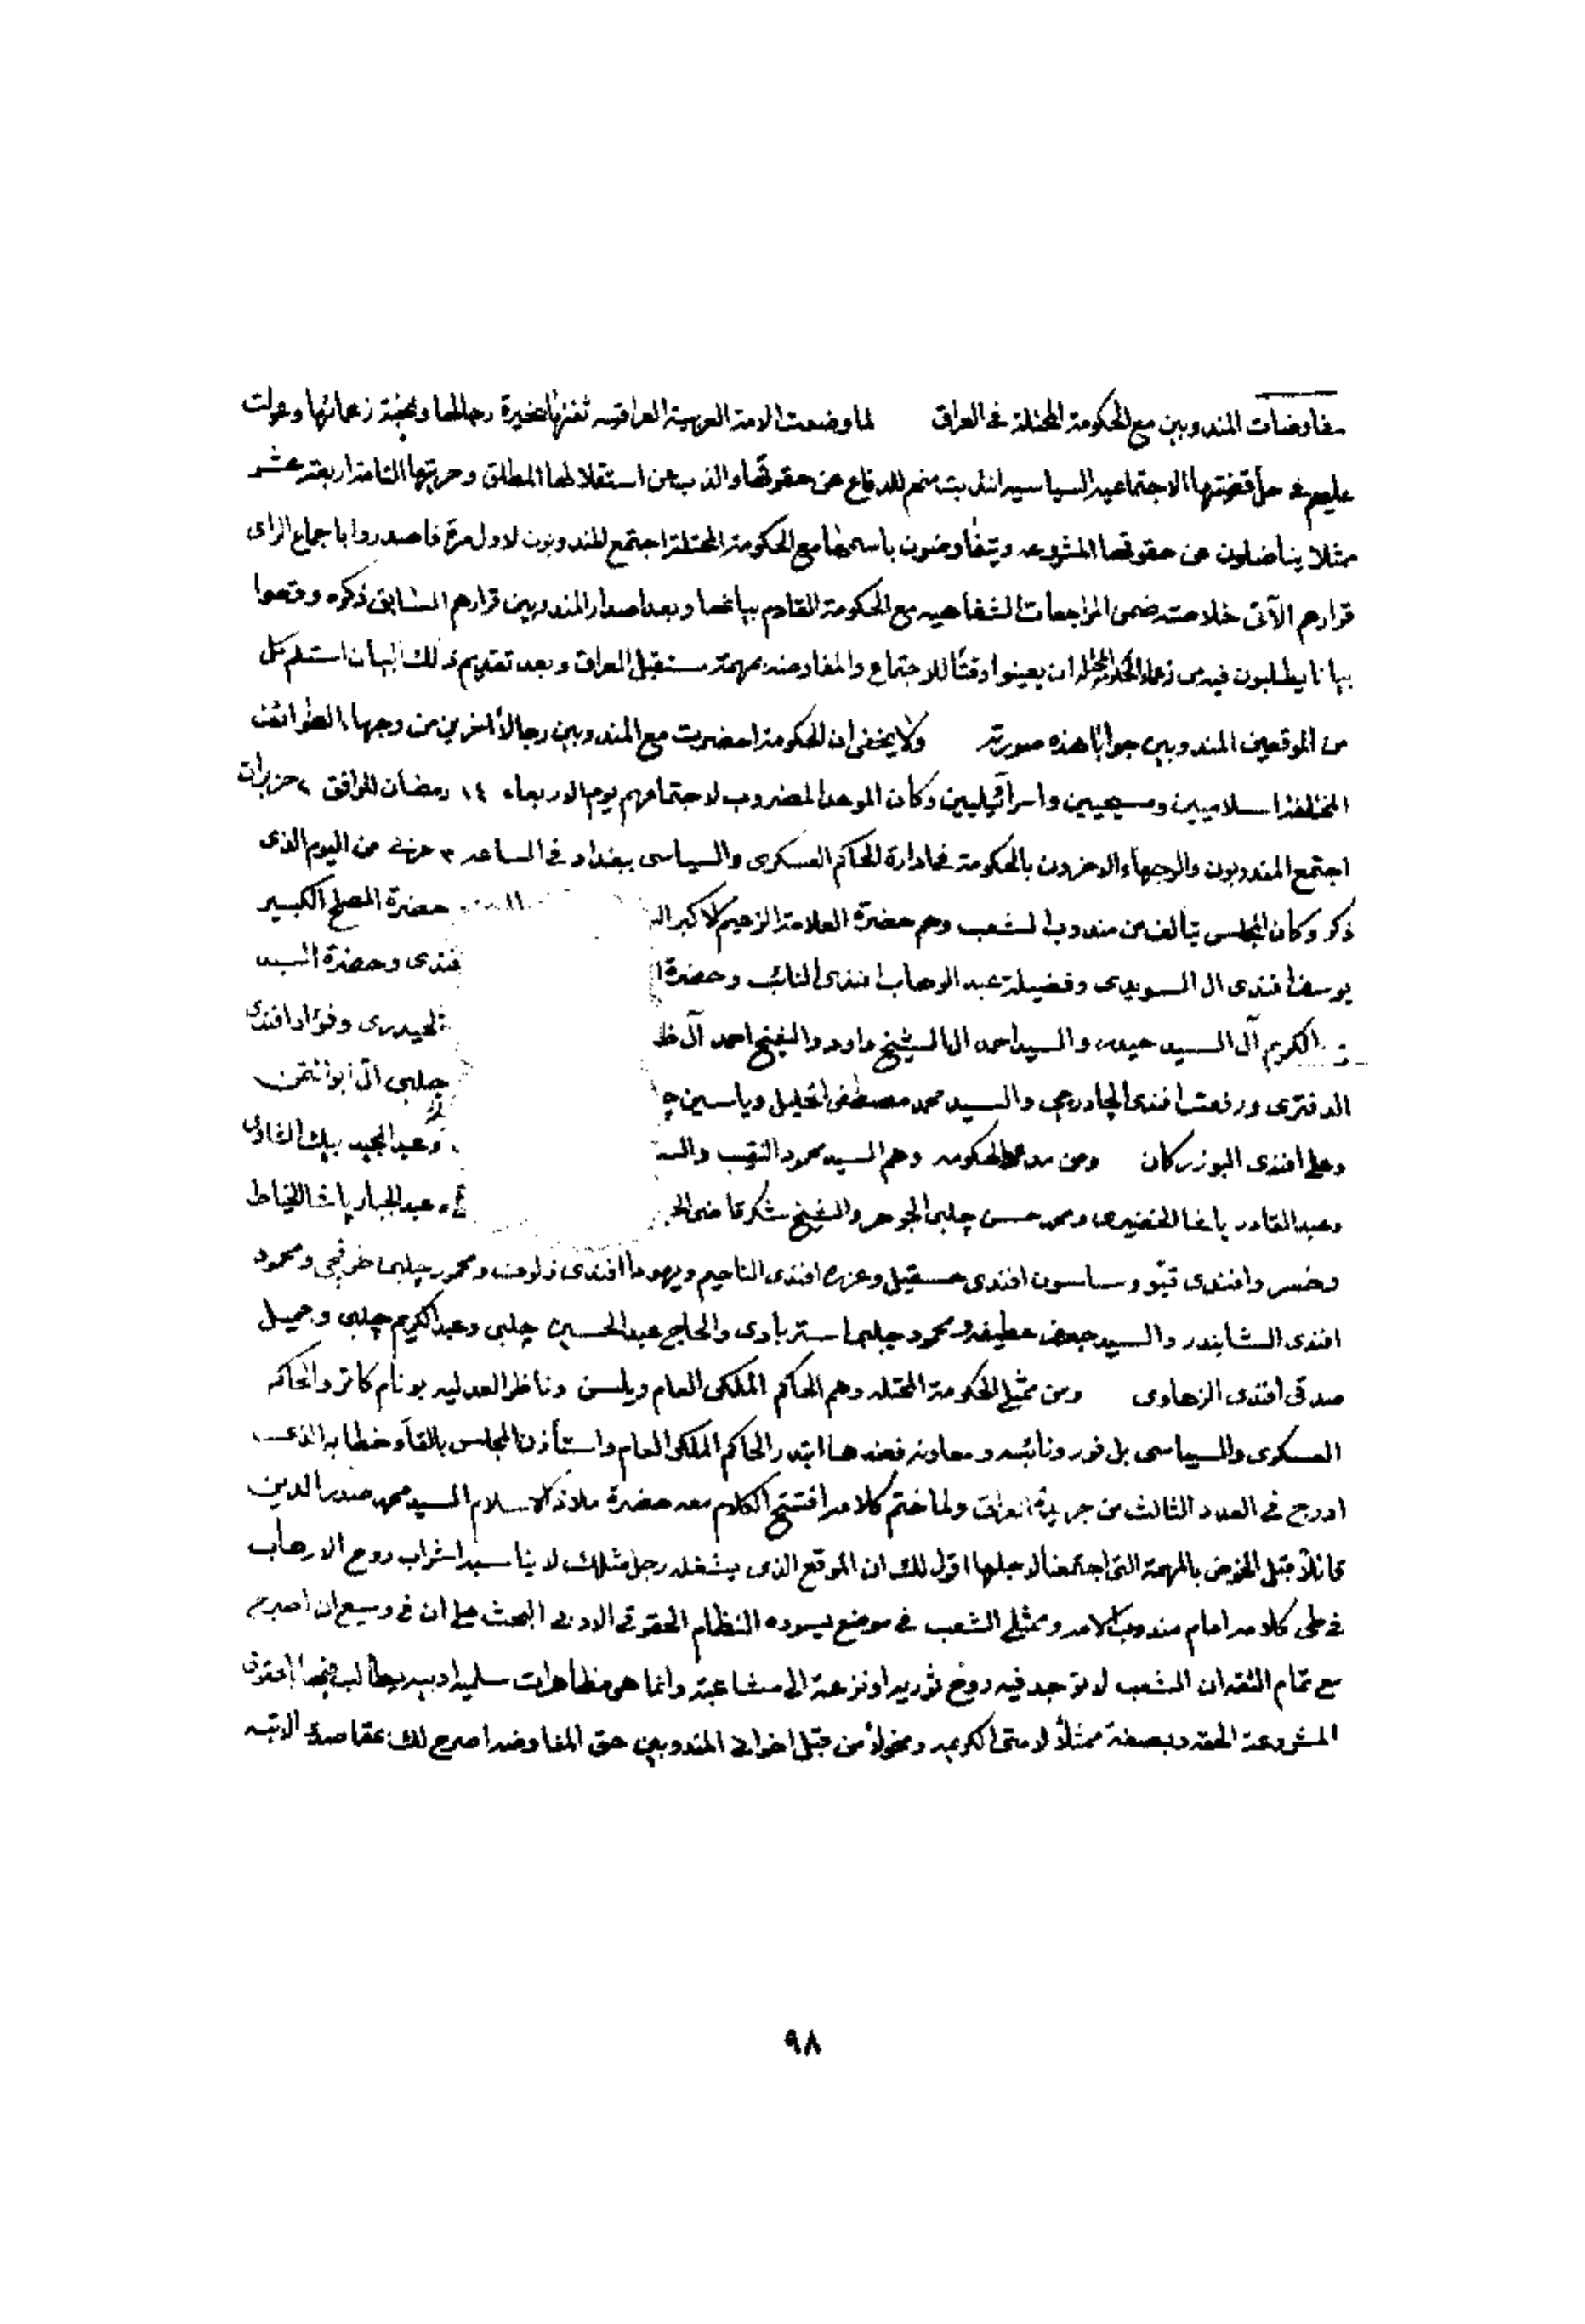 مفاوضات المندوبين مع الحكومة المحتلة في العراق لما وضعت الامة العربية العراقيه ثقتها بخيرة رجالها ونخبة زعمائها وعولت
عليهم في حل قضيتها الاجتماعيه السياسيه انتدبت منهم للدفاع عن حقوقها والذب عن استقلالها المطلق وحريتها التامة اربعة عشر
ممثلا يناضلون عن حقوقها المشروعه ويتفاوضون باسمها مع الحكومة المحتلة اجتمع المندوبون لاول مرة فاصدروا باجماع الراى
قرارهم الآتى خلاصته ضمن المراجعات الشفاهيه مع الحكومة القادم بيانها وبعد اصدار المندوبين قرارهم السابق ذكره وقعوا
بيانا يطلبون فيه من الحكومة المحتلة ان يعينوا وقتًا للاجتماع والمفاوضه بمهمة مستقبل العراق وبعد تقديم ذلك البيان استلم كل
من الموقعين المندوبين جوابا هذه صورته ولا يخفى ان الحكومة احضرت مع المندوبين رجالاً اخرين من وجهاء الطوائف
المختلفة اسلاميين ومسيحيين واسرائيليين وكان الموعد المضروب لاجتماعهم يوم الاربعاء ١٤ رمضان الموافق ٢ حزيران
اجتمع المندوبون والوجهاء الاخرون بالحكومة في ادارة الحاكم العسكرى والسياسى ببغداد في الساعه ٣ من اليوم الذى
ذكر وكان المجلس يتألف من مندوبى الشعب وهم حضرة العلامة الزعيم الاكبر حضرة المصلح الكبير
يوسف افندى ال السويدى وفضيلة عبد الوهاب افندى النائب وحضرة فندى وحضرة السيد
الكريم آل السيد حيدر والسيد احمد ال الشيخ داود والشيخ احمد آل الحيدرى وفؤاد افندى
الدفترى ورفعت افندى الچادرجى والسيد محمد مصطفى الخليل وياسين چلبى ال ابو التمن
وعلى افندى البوزركان ومن الحكومه وهم السيد محمود النقيب وعبد المجيد بيك الشاوى
وعبد القادر باشا الخضيرى ومحمد حسن چلبى الجوهر والشيخ شكر قاضى عبد الجبار باشا الخياط
وخسرو افندى قيو وساسون افندى حسقيل وعزره افندى الناحيم ويهودا افندى زلوف ومحمود چلبى طرقچى ومحمود
افندى الشابندر والسيد جعفر عطيفه ومحمود چلبى استربادى والحاج عبد الحسين چلبى وعبد الكريم چلبى وجميل
صدقى افندى الزهاوى ومن ممثلى الحكومة المحتله وهم الحاكم الملكى العام ويلسن وناظر العدليه بونام كاتر والحاكم
العسكرى والسياسى بل فور ونائبه ومعاونه فعندها ابتدر الحاكم الملكى العام واستأذن المجلس بالقاء خطابه الذى
ادرج في العدد الثالث من جريدة العراق ولما ختم كلامه افتتح الكلام معه حضرة ملاذ الاسلام السيد محمد صدر الدين
قائلاً قبل الخوض بالمهمة التى اجتمعنا لاجلها اقول لك ان الموقع الذى يشغله رجل مثلك لا يناسبه اشراب روح الارهاب
في طى كلامه امام مندوبى الامه وممثلى الشعب في موضع يسوده النظام الحقوقى الادبى البحث على ان في وسيع ان اصرح
مع تمام الثقه ان الشعب لا توجد فيه روح ثوريه او نزعة الى مشاغبة وانما هى مظاهرات سلميه ادبيه يطالب فيها الحقوق
المشروعة الحقه وبصفة ممثلاً لامتى الكريمه ومخولاً من قبل اخوانى المندوبين حق المفاوضه اصرح لك بمقاصدى الاتيه
٩٨